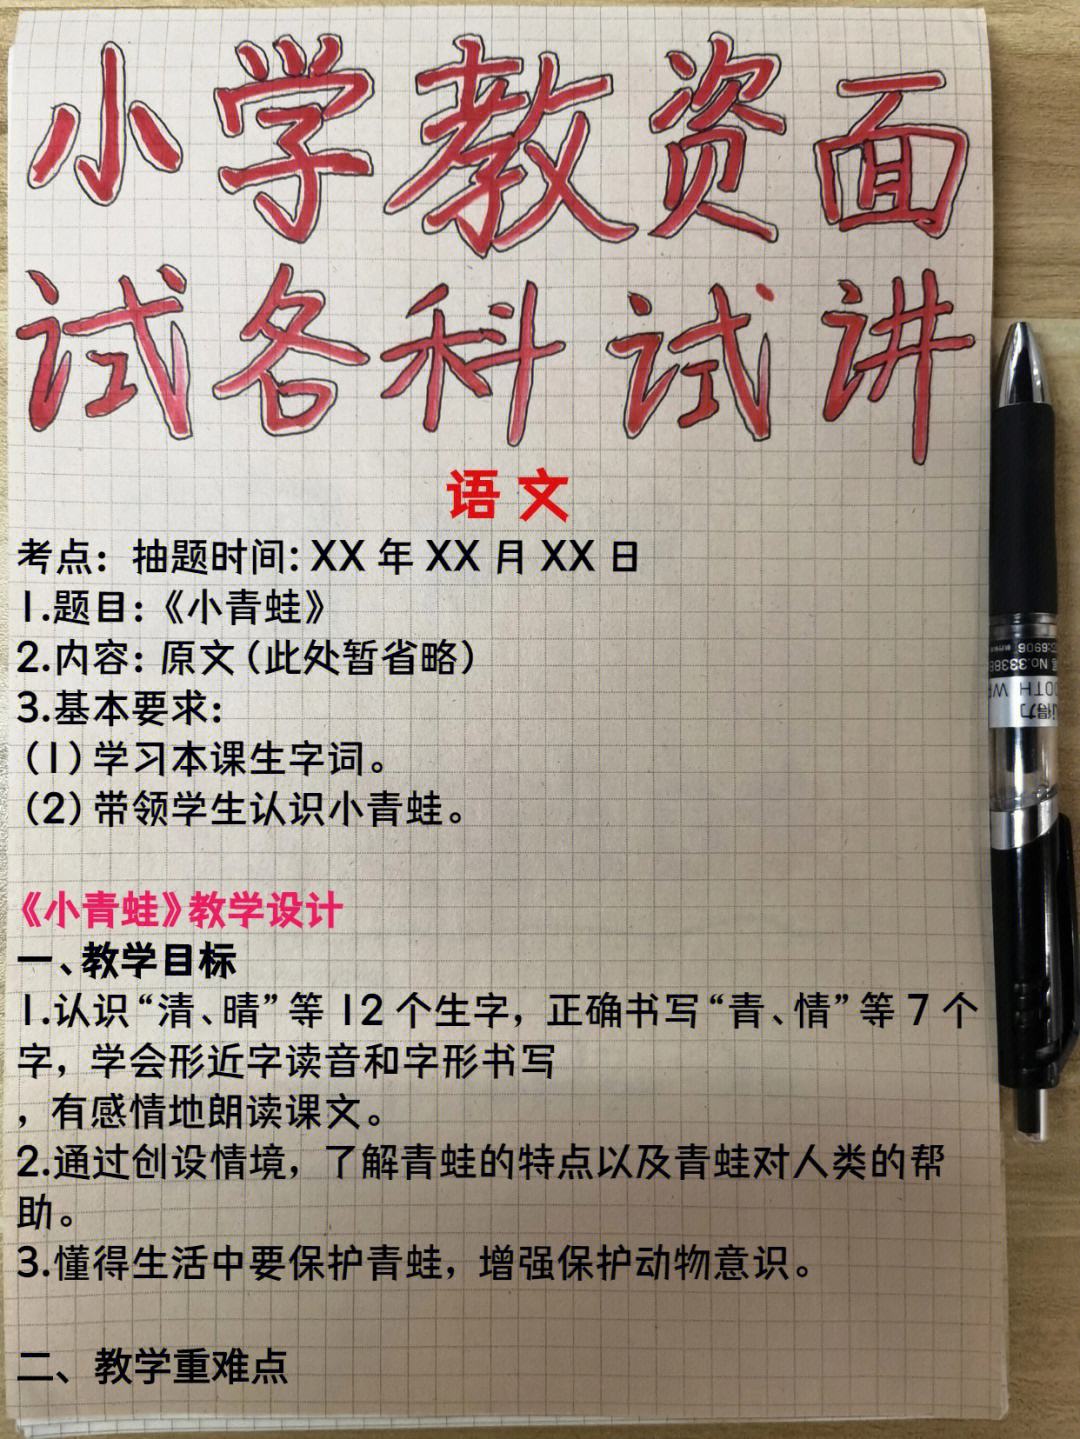 小学教资面
试各科试讲
语文
考点：抽题时间：XX年XX月XX日
1.题目：《小青蛙》
2.内容：原文（此处暂省略）
3.基本要求：
（1）学习本课生字词。
（2）带领学生认识小青蛙。
《小青蛙》教学设计
一、教学目标
1.认识“清、晴”等12个生字，正确书写“青、情”等7个
字，学会形近字读音和字形书写
，有感情地朗读课文。
2.通过创设情境，了解青蛙的特点以及青蛙对人类的帮
助。
3.懂得生活中要保护青蛙，增强保护动物意识。
二、教学重难点
得力
No.3388